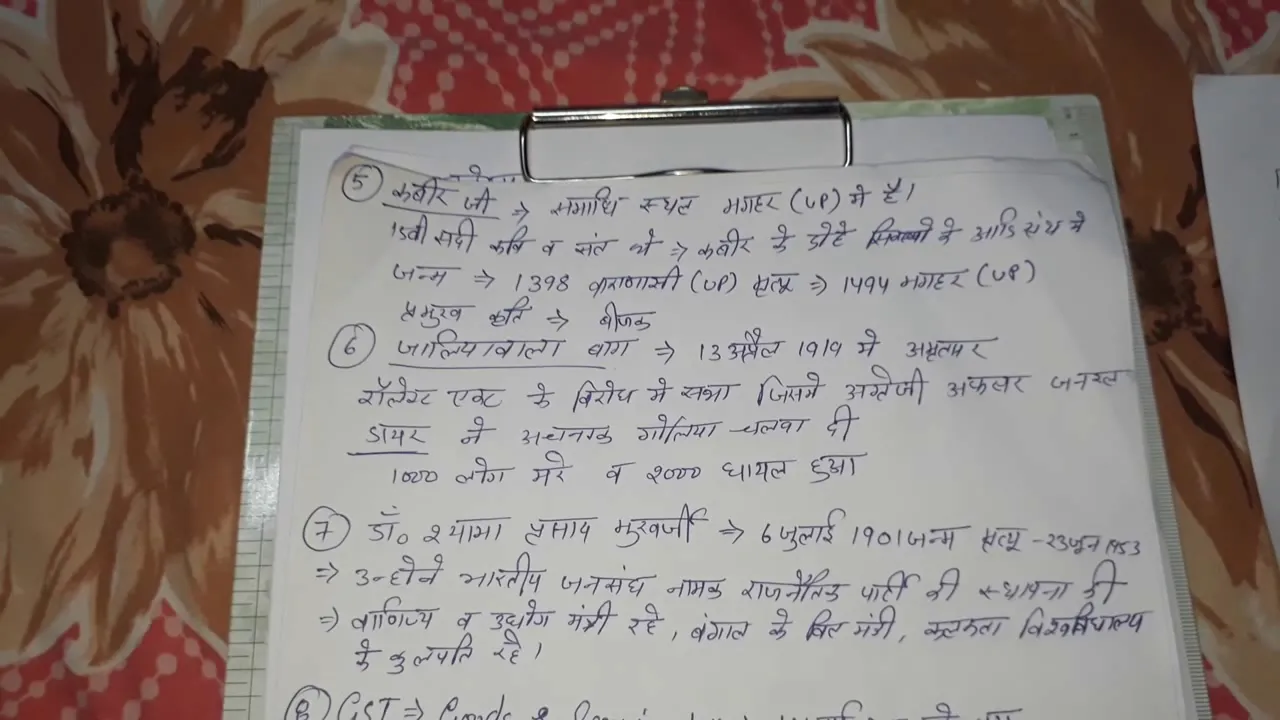 ⑤ कबीर जी ⇒ समाधि स्थल मगहर (UP) मे है।
15वी सदी कवि व संत थे ⇒ कबीर के दोहे सिक्खो के आदि ग्रंथ मे
जन्म ⇒ 1398 वाराणसी (UP) मृत्यु ⇒ 1494 मगहर (UP)
प्रमुख कृति ⇒ बीजक
⑥ जालियावाला बाग ⇒ 13 अप्रैल 1919 मे अमृतसर
रॉलेट एक्ट के विरोध मे सभा जिसमे अग्रेजी अफसर जनरल
डायर ने अचानक गोलिया चलवा दी
1000 लोग मरे व 2000 घायल हुआ
⑦ डॉ० श्यामा प्रसाद मुखर्जी ⇒ 6 जुलाई 1901 जन्म मृत्यु - 23 जून 1953
⇒ उन्होने भारतीय जनसंघ नामक राजनैतिक पार्टी की स्थापना की
⇒ वाणिज्य व उद्योग मंत्री रहे, बंगाल के वित मंत्री, कलकता विश्वविधालय
के कुलपति रहे।
⑧ GST ⇒ Goods &